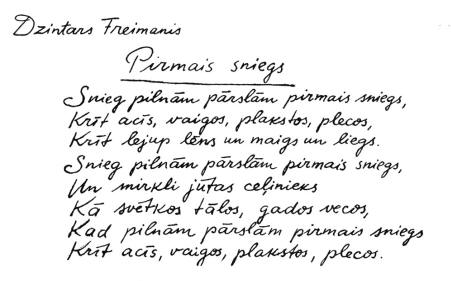 Dzintars Freimanis
Pirmais sniegs
Snieg pilnām pārslām pirmais sniegs,
Krīt acīs, vaigos, plakstos, plecos,
Krīt lejup lēns un maigs un liegs.
Snieg pilnām pārslām pirmais sniegs,
Un mirkli jūtas ceļinieks
Kā svētkos tālos, gados vecos,
Kad pilnām pārslām pirmais sniegs
Krīt acīs, vaigos, plakstos, plecos.